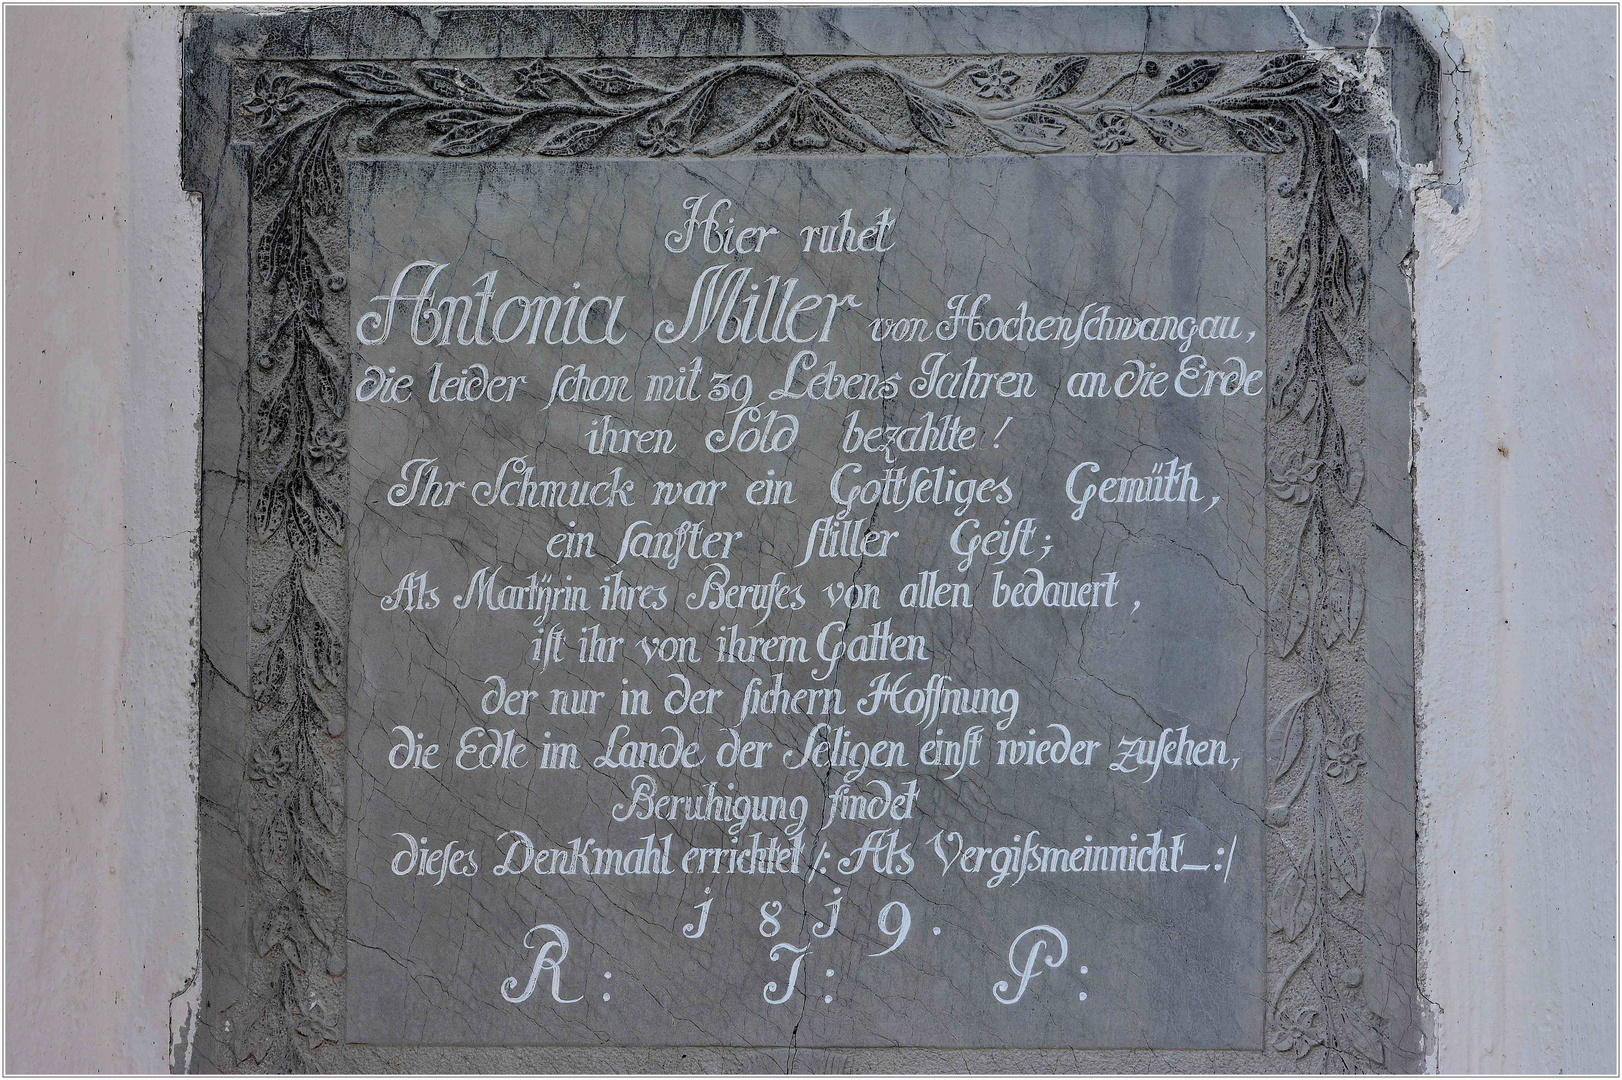 Hier ruhet
Antonia Miller von Hochenſchwangau,
die leider ſchon mit 39 Lebens Jahren an die Erde
ihren Sold bezahlte !
Ihr Schmuck war ein Gottſeliges Gemüth,
ein ſanfter ſtiller Geiſt;
Als Martÿrin ihres Berufes von allen bedauert,
iſt ihr von ihrem Gatten
der nur in der ſichern Hoffnung
die Edle im Lande der Seligen einſt wieder zuſehen,
Beruhigung findet
dieſes Denkmahl errichtet /: Als Vergiſsmeinnicht_:/
1819.
R: I: P: